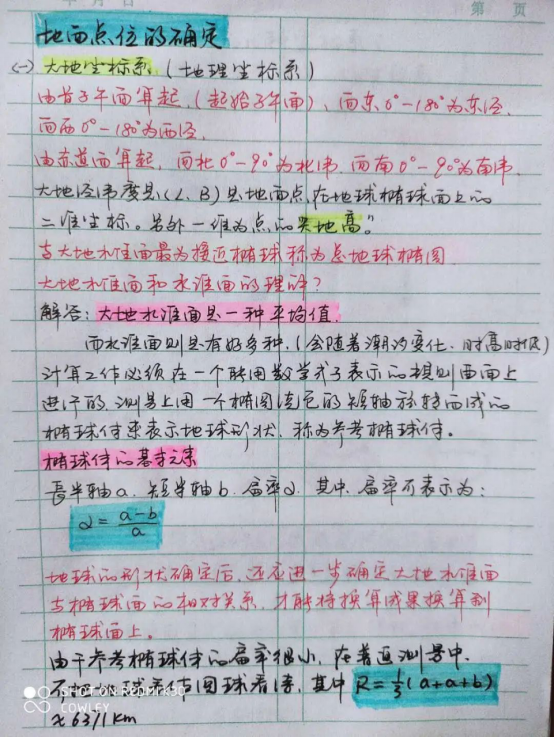 年 月 日
第 页
地面点位的确定
(一) 大地坐标系 (地理坐标系)
由首子午面算起,(起始子午面),向东0°-180°为东经,
向西0°-180°为西经,
由赤道面算起,向北0°-90°为北纬,向南0°-90°为南纬,
大地经纬度是(L、B)是地面点在地球椭球面上的
二维坐标。另外一维为点的大地高。
与大地水准面最为接近椭球称为总地球椭圆
大地水准面和水准面的理解?
解答:大地水准面是一种平均值,
而水准面则是有好多种,(会随着潮汐变化、时高时低)
计算工作必须在一个能用数学式子表示的规则曲面上
进行的,测量上用一个椭圆绕它的短轴旋转而成的
椭球体来表示地球形状,称为参考椭球体。
椭球体的基本元素
長半轴a、短半轴b、扁率α,其中,扁率可表示为:
α = a-b/a
地球的形状确定后,还应进一步确定大地水准面
与椭球面的相对关系,才能将换算成果换算到
椭球面上。
由于参考椭球体的扁率很小,在普通测量中,
圆球看待,其中 R = 1/3(a+a+b)
≈6371km
SHOT ON REDMI K30
COWLEY